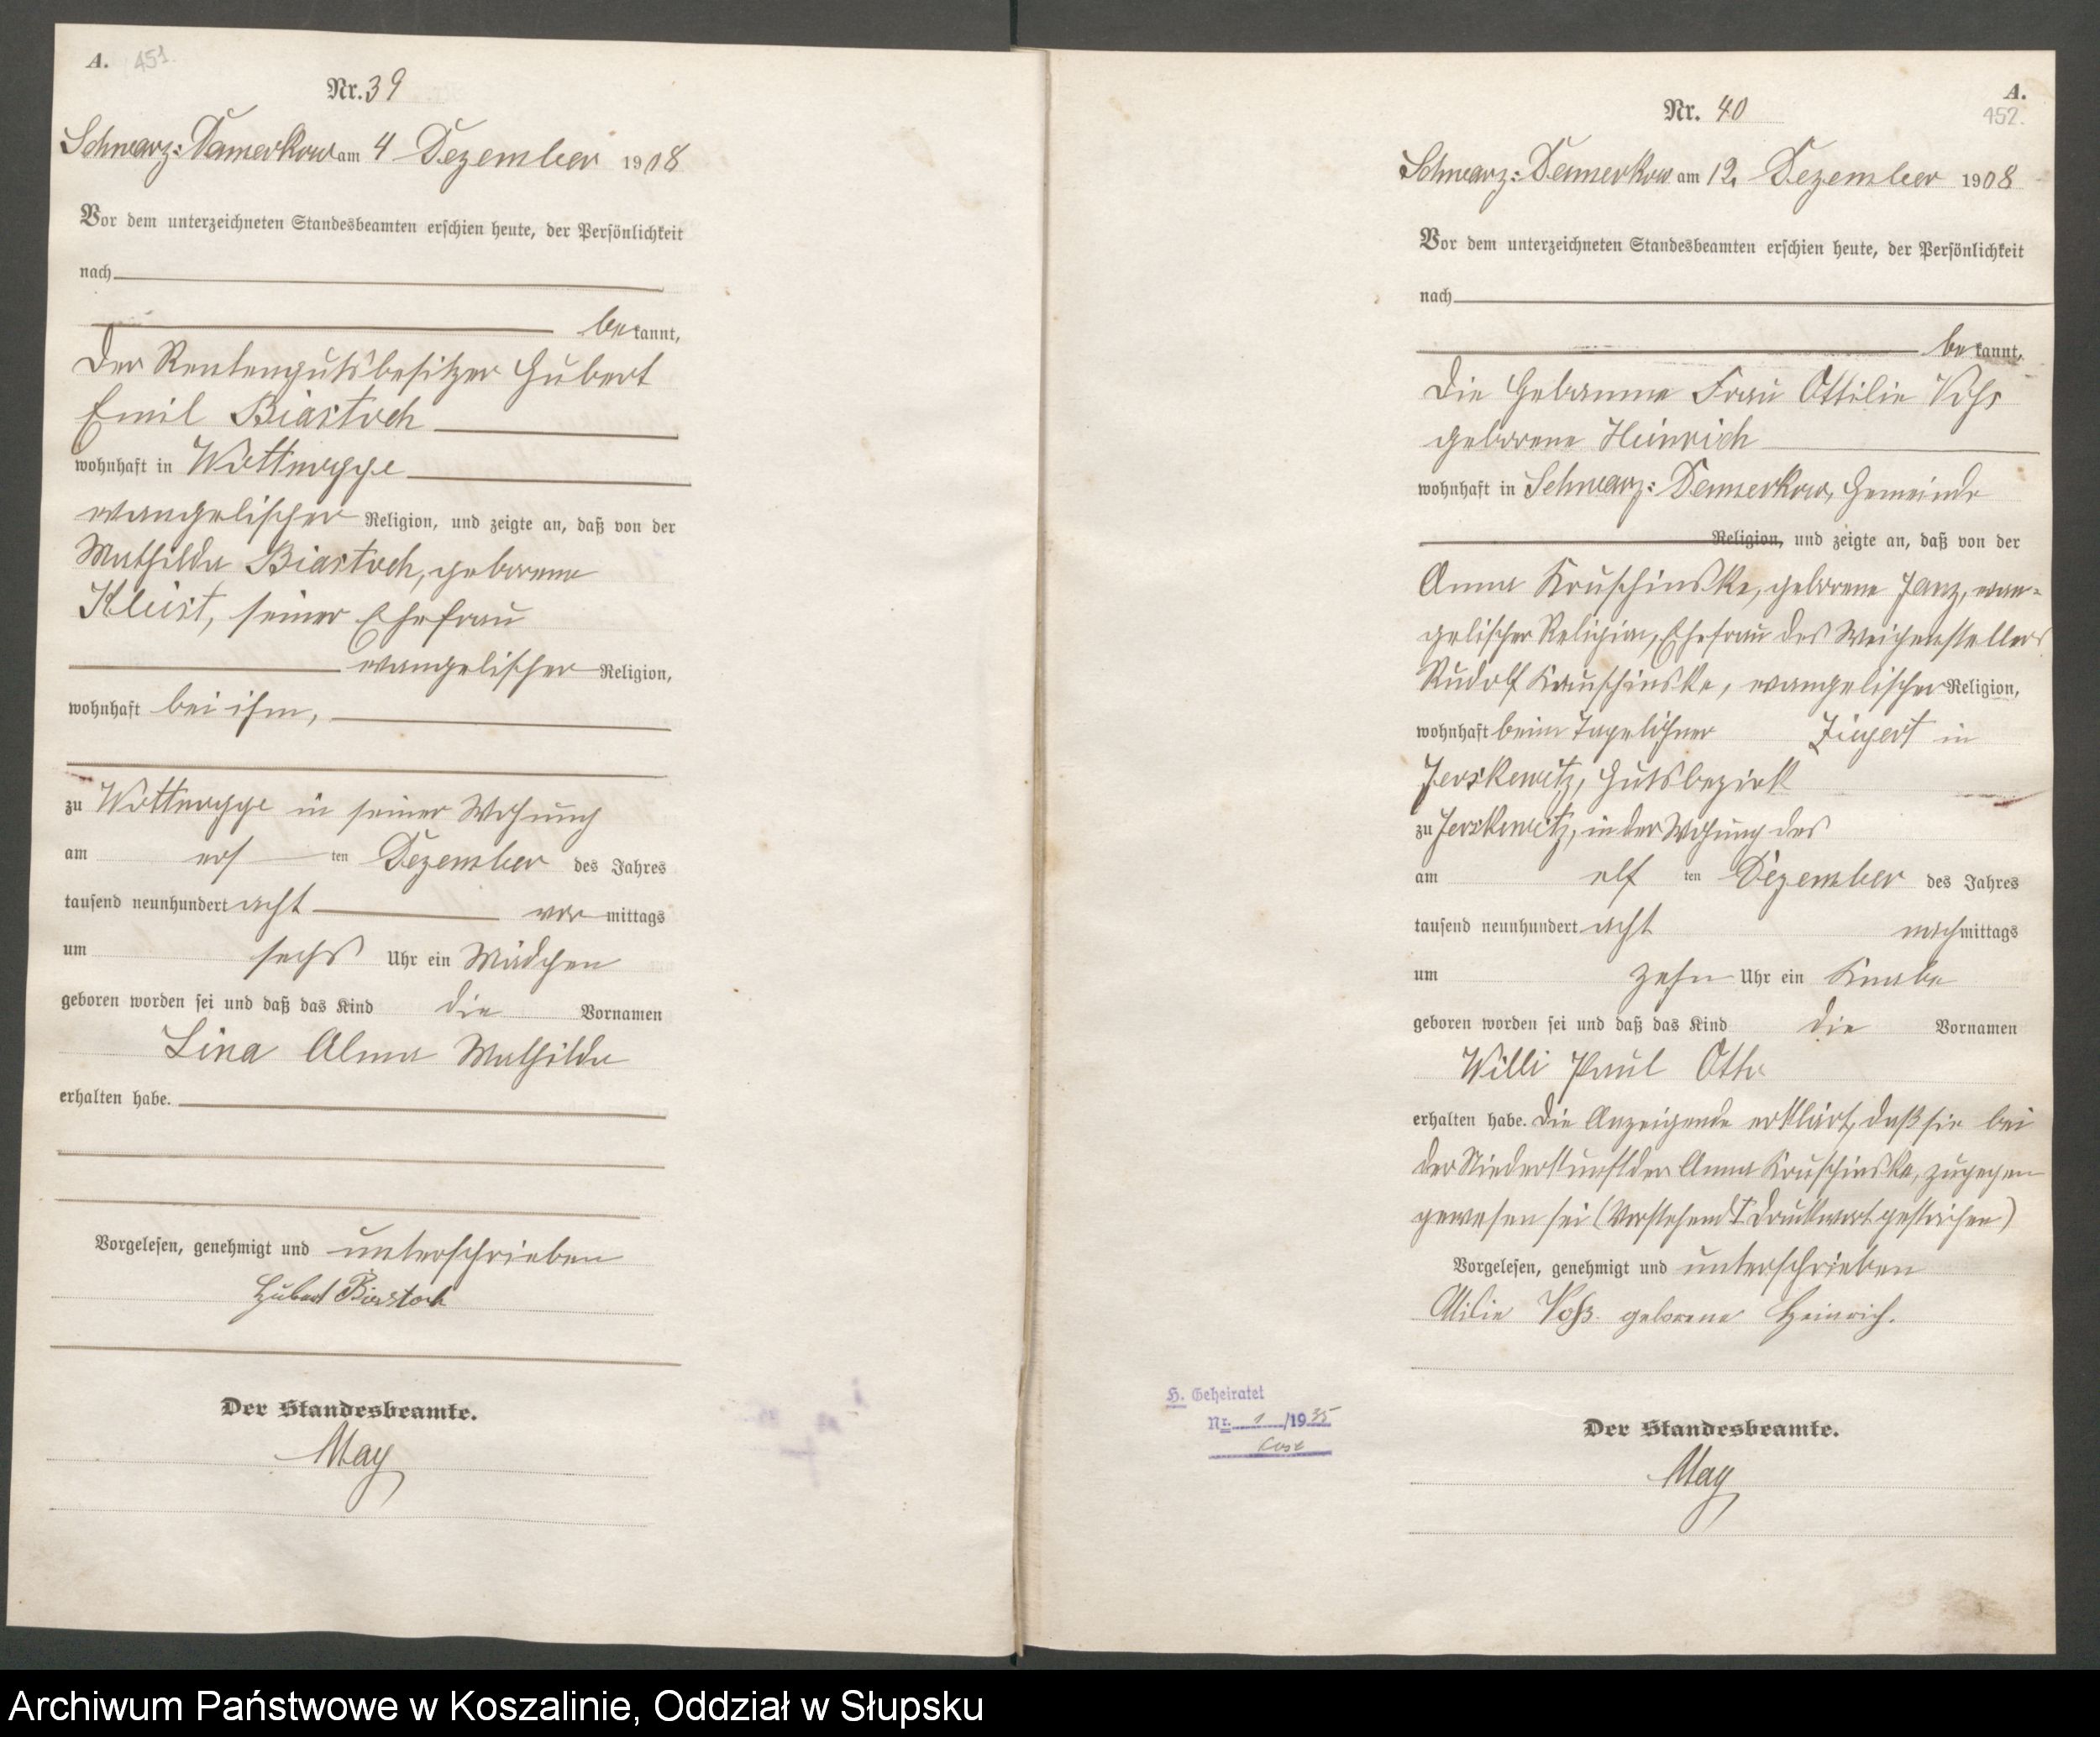 A. 451.
Nr. 39
Schwarz-Damerkow am 4 Dezember 1908
Vor dem unterzeichneten Standesbeamten erschien heute, der Persönlichkeit
nach
bekannt,
der Rentengutsbesitzer Hubert
Emil Biastoch
wohnhaft in Wottnogge
evangelischer Religion, und zeigte an, daß von der
Mathilde Biastoch, geborene
Kleist, seiner Ehefrau
evangelischer Religion,
wohnhaft bei ihm,
zu Wottnogge in seiner Wohnung
am ersten Dezember des Jahres
tausend neunhundert acht vormittags
um sechs Uhr ein Mädchen
geboren worden sei und daß das Kind die Vornamen
Lina Alma Mathilde
erhalten habe.
Vorgelesen, genehmigt und unterschrieben
Hubert Biastoch
Der Standesbeamte.
May
A.
452.
Nr. 40
Schwarz-Damerkow am 12. Dezember 1908
Vor dem unterzeichneten Standesbeamten erschien heute, der Persönlichkeit
nach
bekannt,
die Hebamme Frau Ottilie Voß
geborene Heinrich
wohnhaft in Schwarz-Damerkow, Gemeinde
Religion, und zeigte an, daß von der
Anna Kruschinske, geborene Janz, evan-
gelischer Religion, Ehefrau des Weichenstellers
Rudolf Kruschinske, evangelischer Religion,
wohnhaft beim Tagelöhner Ziegert in
Jerskewitz, Gutsbezirk
zu Jerskewitz, in der Wohnung des
am elften Dezember des Jahres
tausend neunhundert acht nachmittags
um zehn Uhr ein Knabe
geboren worden sei und daß das Kind die Vornamen
Willi Paul Otto
erhalten habe. Die Anzeigende erklärt, daß sie bei
der Niederkunft der Anna Kruschinske, zugegen
gewesen sei (Vorstehend 1 Druckwort gestrichen)
Vorgelesen, genehmigt und unterschrieben
Ottilie Voß geborene Heinrich.
H. Geheiratet
Nr. 1/1935
Der Standesbeamte.
May
Archiwum Państwowe w Koszalinie, Oddział w Słupsku